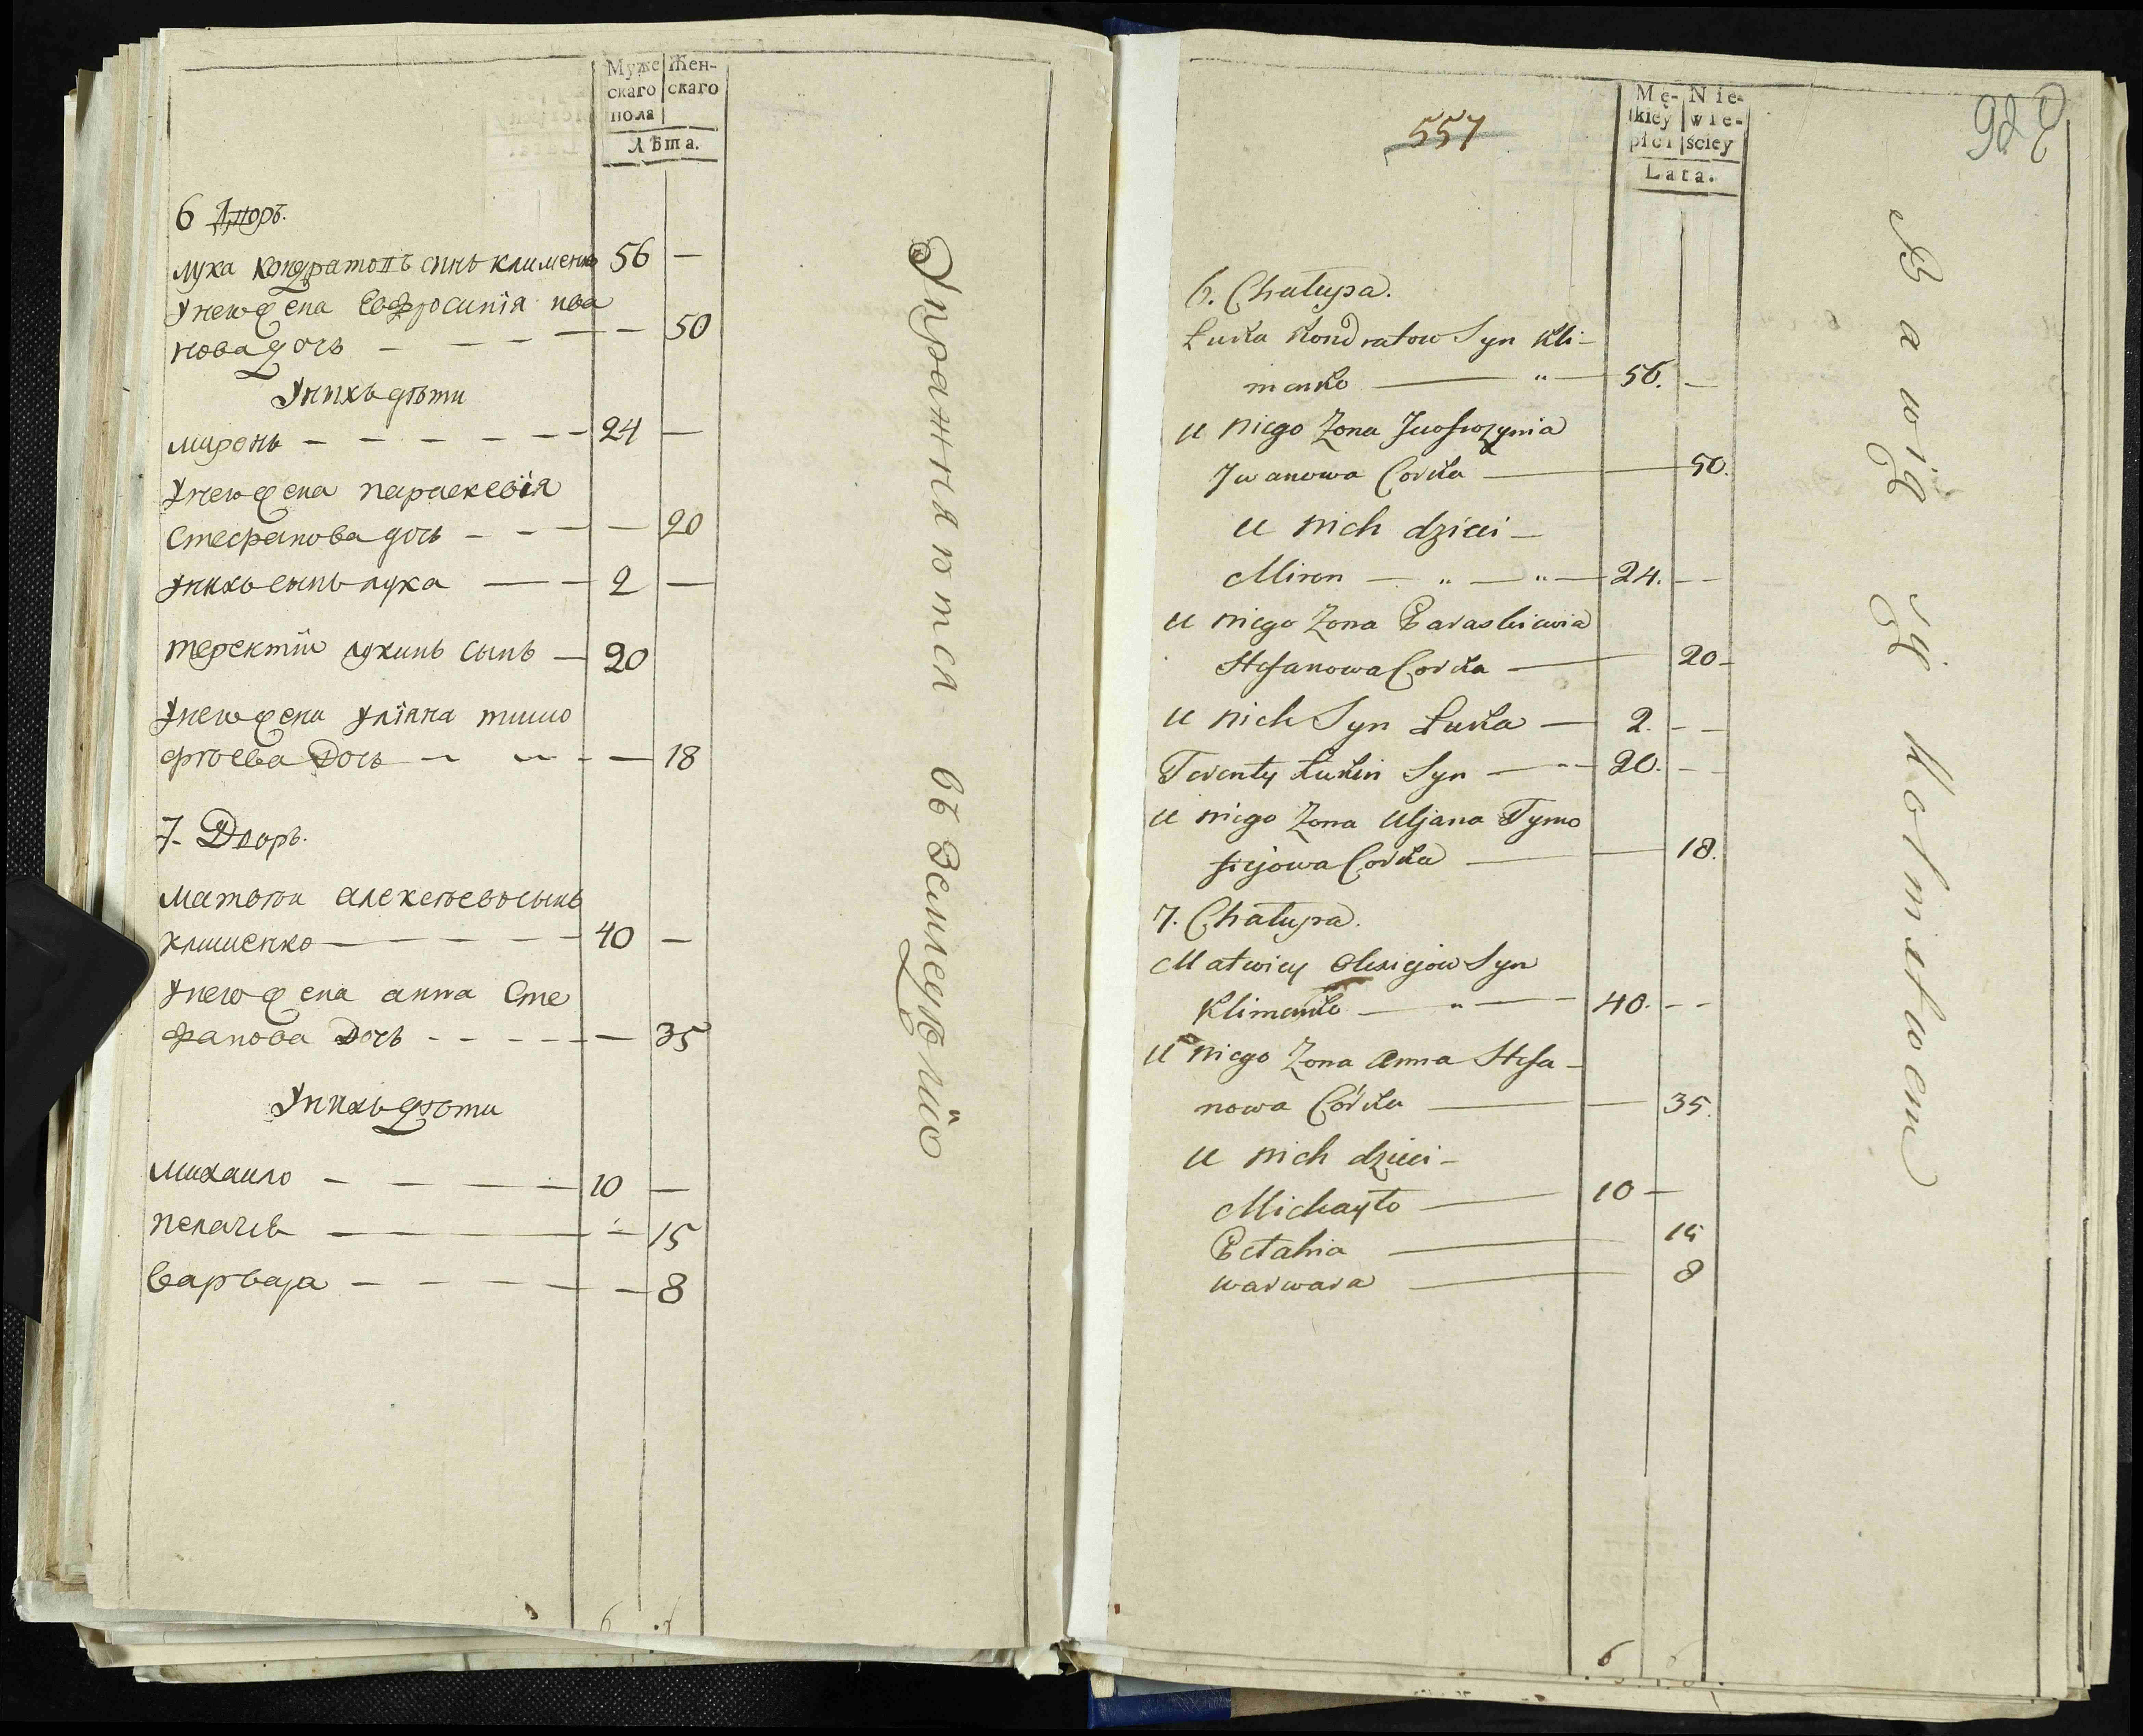 Муже Жен-
скаго скаго
пола
Лѣта.
6 Дворъ.
лука Кондратовъ синъ клименко 56 —
Унего жена Евфросинія ива
нова дочь — — — — — 50
Унихъ дѣти
миронъ — — — — — — 24 —
Унего жена параскевія
Стефанова дочь — — — — 20
унихъ синъ лука — — 2 —
терентій лукинъ сынъ — 20
Унего жена уліяна тимо
фѣева Дочь — — — — 18
7. Дворъ.
матвѣи алексѣевъ сынъ
клименко — — — — — 40 —
Унего жена анна Сте
фанова Дочь - - - - - — 35
Унихъ дѣти
михаило — — — — — 10 —
пелагіѣ — — — — — 15
варвара — — — — — 8
Упражняются въ Земледѣліи
6
557
Mę- Nie-
zkiey wie-
płci ściey
Lata.
6. Chałupa.
Łuka Kondratow Syn Kli-
menko — " — 56. —
u niego Zona Jwofrozynia
Jwanowa Corka — — 50.
u nich dzieci —
Miron — " — " — 24. — —
u niego Zona Paraskiewia
Stefanowa Corka — 20 —
u nich Syn Łuka — 2. — —
Terenty Łukin Syn — " — 20. — —
u niego Zona Uljana Tymo
fiejowa Corka — — 18.
7. Chałupa.
Matwiey Olexiejow Syn
Klimenko — " — 40. — —
u niego Zona Anna Stefa-
nowa Córka — — 35.
u nich dzieci —
Michayło — 10 —
Pełahia — 15
warwara — 8
Bawią się Rolnictwem
6